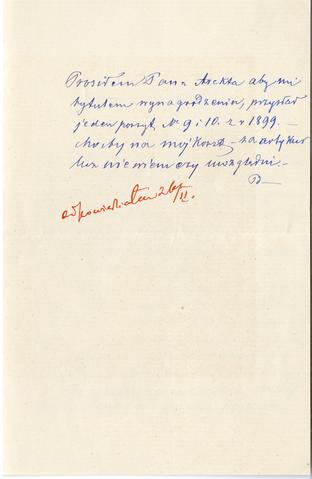 Prosiłem Pana Arckta aby mi
tytułem wynagrodzenia, przysłał
jeden poszyt, N. 9 i 10. z r 1899. —
choćby na mój koszt — za artykuł
lecz nie wiem czy uwzględni. —
B—
odpowiedziałem 26/II.